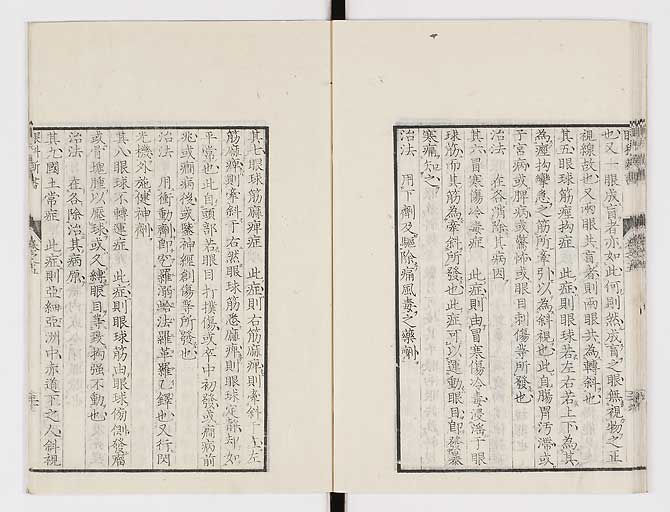 也又一眼成盲者亦如此何則然成盲之眼無視物之正
視線故也又兩眼共盲者則兩眼共為轉斜也
其五眼球筋瘛拘症 此症則眼球若左右若上下為其
為瘛拘攣急之筋所牽引以為斜視也此自腸胃汚濁或
子宮病或脾病或驚怖或眼目刺傷等所發也
治法 在各消除其病因
其六冒寒傷冷毒症 此症則由冒寒傷冷毒浸淫于眼
球筋而其筋為牽斜所發也此症可以運動眼目卽發
寒痛知之
治法 用下劑及驅除痛風毒之藥劑
其七眼球筋麻痺症 此症則右筋麻痺則牽斜于左左
筋麻痺則牽斜于右然眼球筋悉麻痺則眼球定靜却如
平常也此自頭部若眼目打撲傷或卒中初發或癇病前
兆或癇病後或鑿神經創傷等所發也
治法 用衝動劑卽 羅溺蛤法羅革羅 鐸也又行閃
光機外施健神劑
其八眼球不轉運症 此症則眼球筋由眼球傍側發瘤
或骨壞腫以壓球或久縛眼目等或拘强不動也
治法 在各除治其病原
其九國土常症 此症則亞細亞洲中赤道下之人斜視
眼科新書